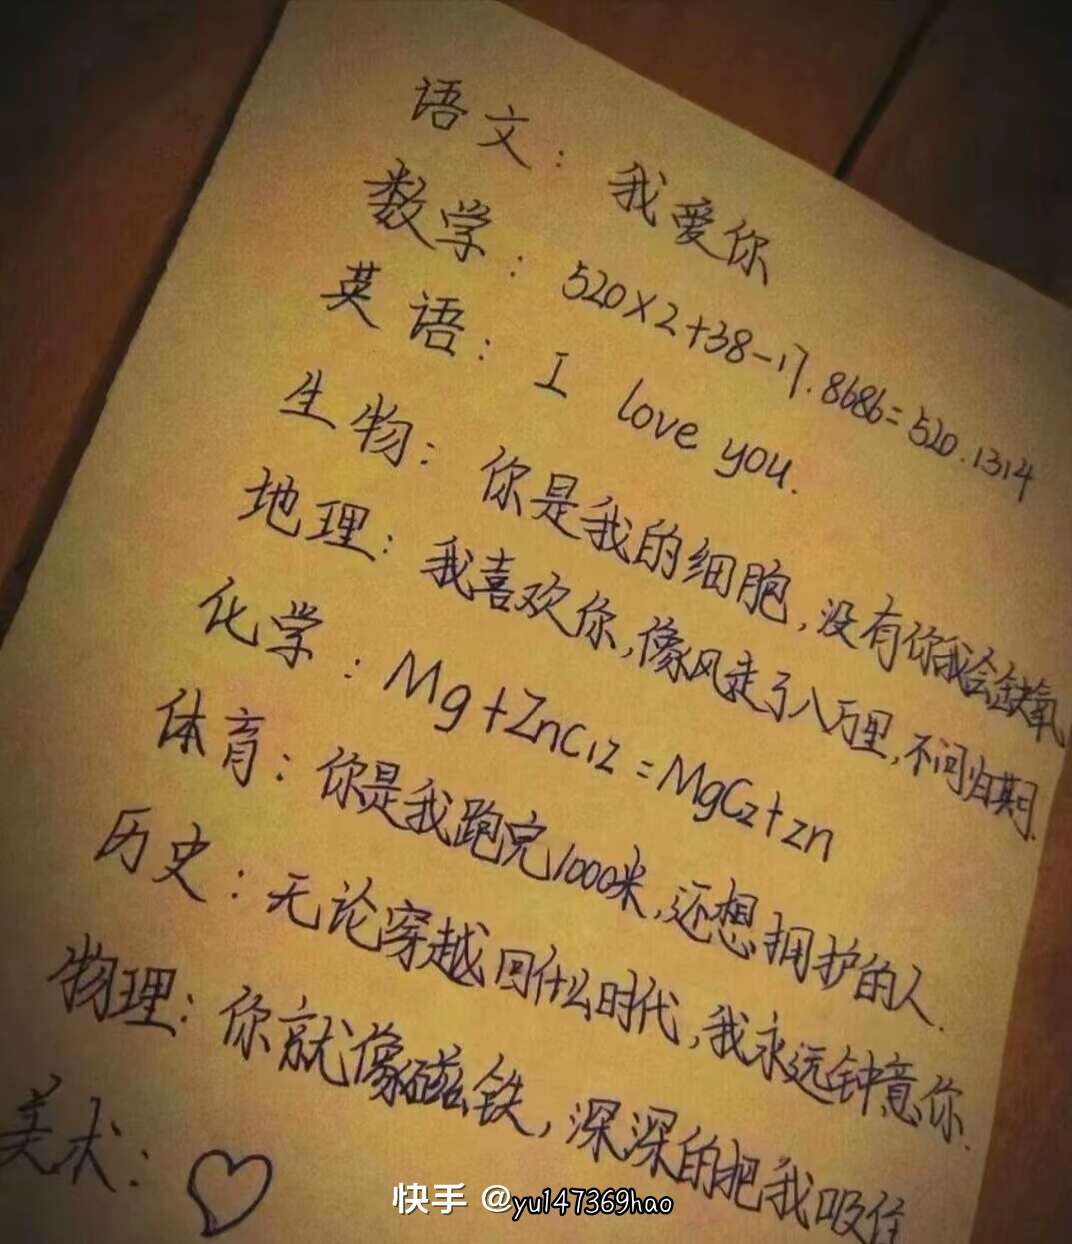 语文：我爱你
数学：520×2+38-17.8686=520.1314
英语：I love you.
生物：你是我的细胞，没有你我会缺氧
地理：我喜欢你，像风走了八万里，不问归期.
化学：Mg+Zncl2=MgC2+zn
体育：你是我跑完1000米，还想拥护的人.
历史：无论穿越回什么时代，我永远钟意你.
物理：你就像磁铁，深深的把我吸住
美术：
快手 @yu147369hao